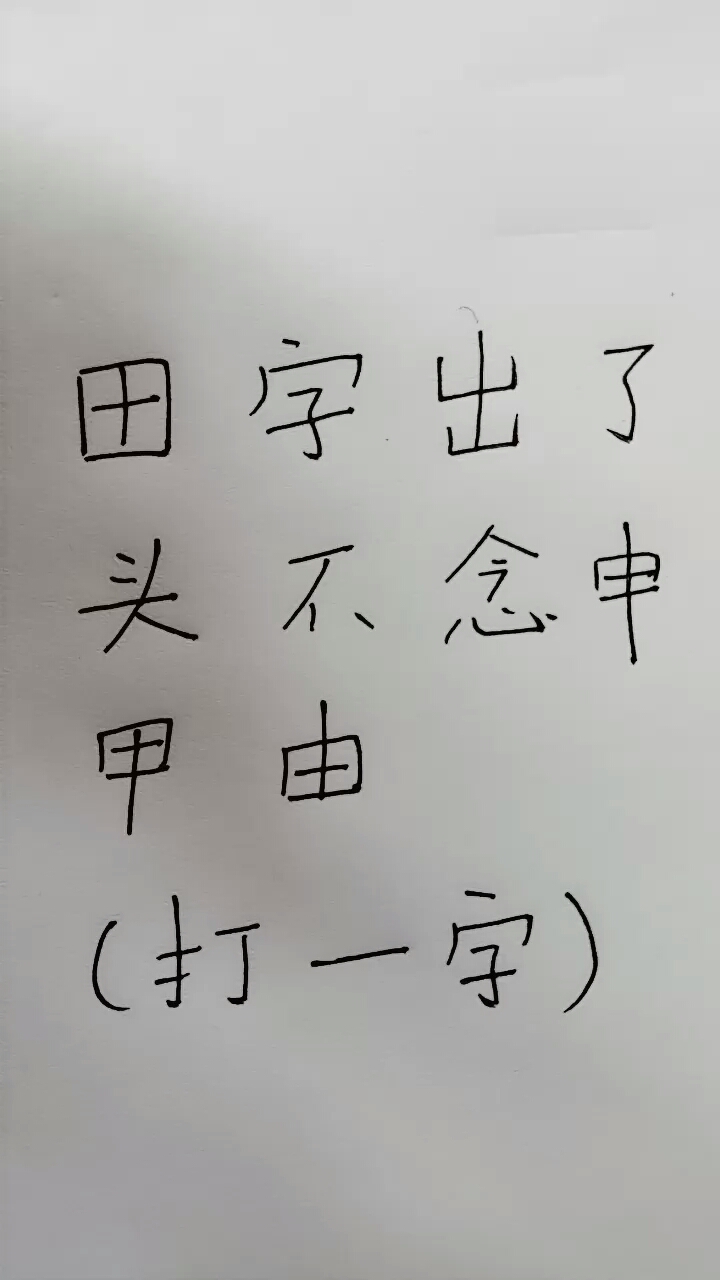 田字出了
头不念申
甲由
(打一字)